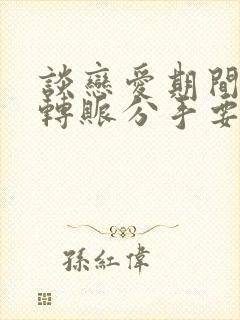 談戀愛期間
轉賬分手要
孫紅偉